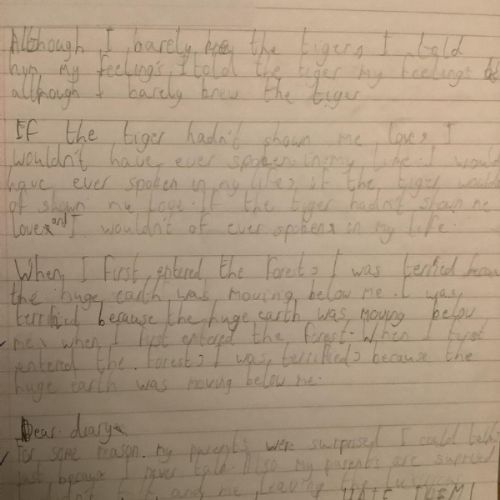 Although I barely the tiger, I told
him my feelings, I told the tiger my feelings
although I barely knew the tiger
If the tiger hadn't shown me love, I
wouldn't have, ever spoken in my life. I would
have ever spoken in my life, if the tiger would
of shown me love. If the tiger hadn't shown me
love, and I wouldn't of ever spoken in my life
When I first, entered the forest, I was terrified because
the huge earth was, moving, below me. I was,
terrified because the huge earth was moving below
me, when I first entered the, forest. When I first
entered the forest, I was, terrified, because the
huge earth was moving below me.
Dear diary
For some reason, my parents were surprised I could talk
just because I never talk. Also my parents are suprised
and me, leaving